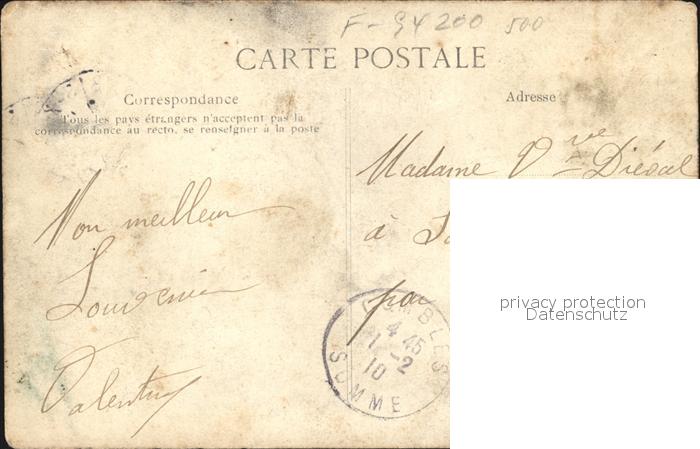 F-94200 500
CARTE POSTALE
Correspondance
Tous les pays étrangers n'acceptent pas la
correspondance au recto, se renseigner à la poste
Adresse
Mon meilleur
Souvenir
Valentin
Madame Vve Diéval
à
par
COMBLES
4 45
1-2
10
SOMME
privacy protection
Datenschutz